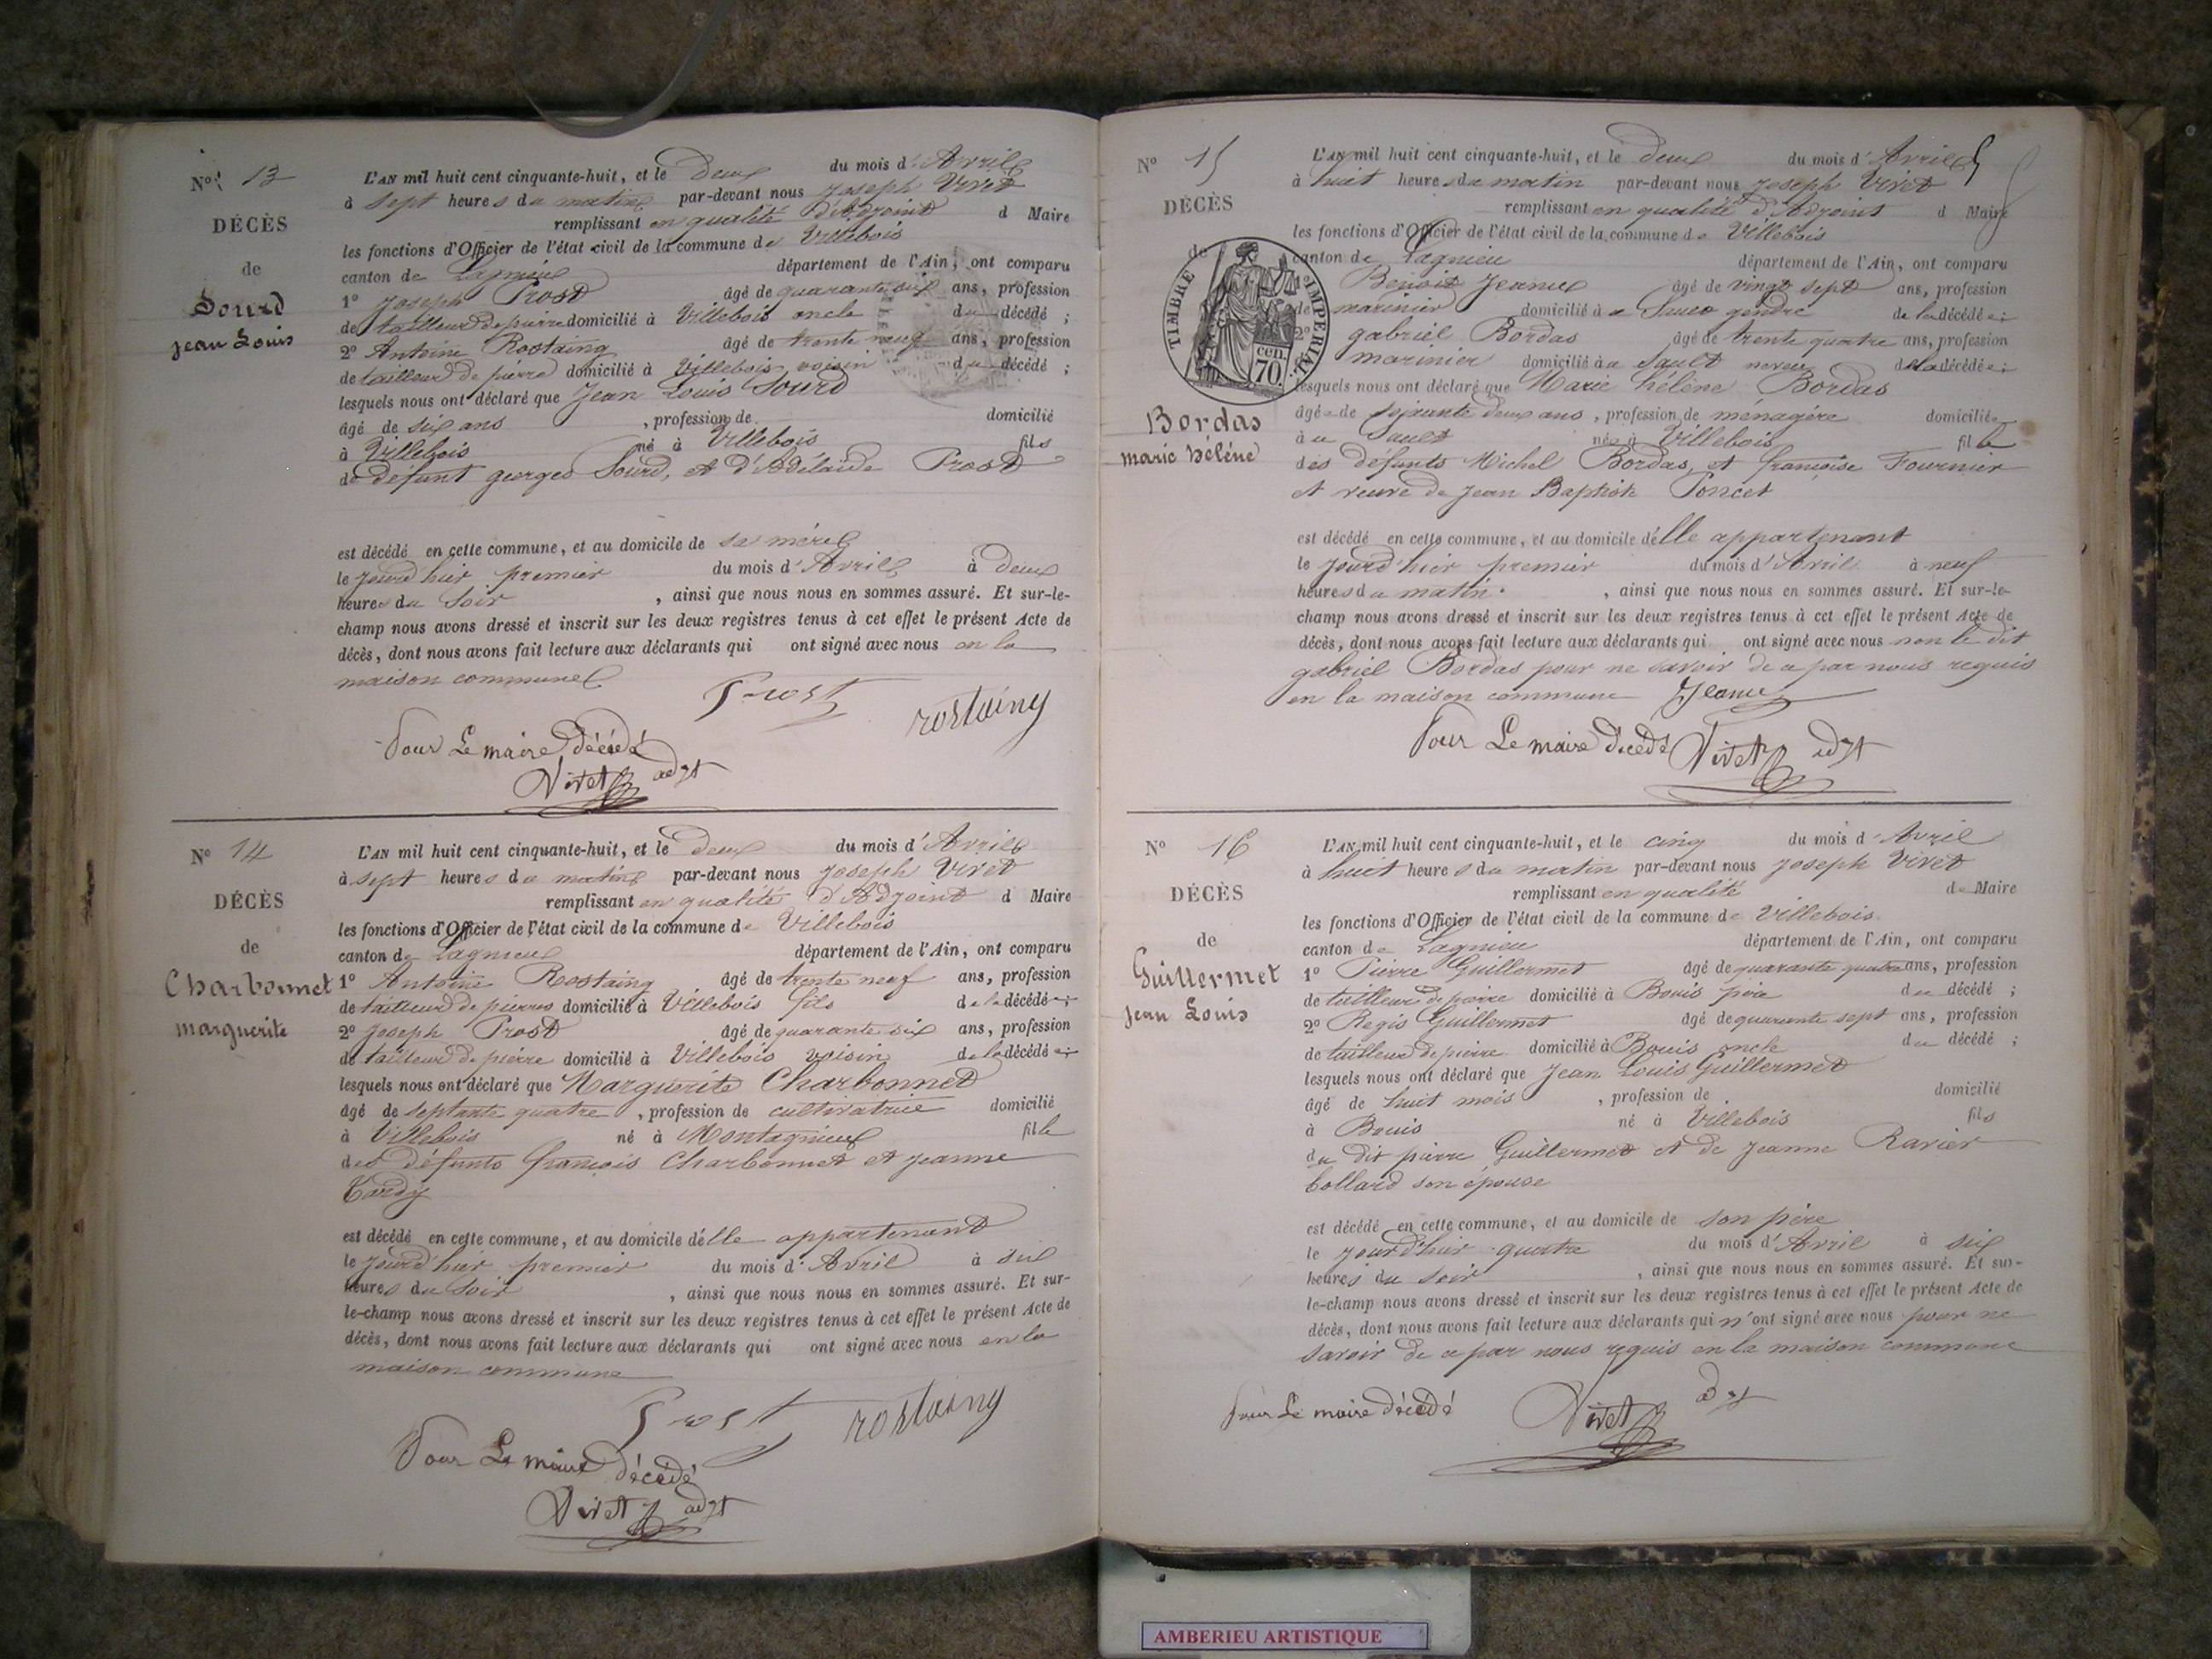 N° 13
DÉCÈS
de
Sourd
jean Louis
L'AN mil huit cent cinquante-huit, et le deux du mois d'Avril
à sept heures du matin par-devant nous Joseph Vivet
remplissant en qualité d'Adjoint d Maire
les fonctions d'Officier de l'état civil de la commune de Villebois
canton de Lagnieu département de l'Ain, ont comparu
1° Joseph Prost âgé de quarante six ans, profession
de tailleur de pierre domicilié à Villebois oncle du décédé ;
2° Antoine Rostaing âgé de trente neuf ans, profession
de tailleur de pierre domicilié à Villebois voisin du décédé ;
lesquels nous ont déclaré que Jean Louis Sourd
âgé de six ans , profession de domicilié
à Villebois né à Villebois fils
de défunt georges Sourd, et d'Adélaïde Prost
est décédé en cette commune, et au domicile de sa mère
le jourd'hier premier du mois d'Avril à deux
heures du soir , ainsi que nous nous en sommes assuré. Et sur-le-
champ nous avons dressé et inscrit sur les deux registres tenus à cet effet le présent Acte de
décès, dont nous avons fait lecture aux déclarants qui ont signé avec nous en la
maison commune
Prost rostaing
Pour Le maire décédé
Vivet adjt
N° 14
DÉCÈS
de
Charbonnet
marguerite
L'AN mil huit cent cinquante-huit, et le deux du mois d'Avril
à sept heures du matin par-devant nous Joseph Vivet
remplissant en qualité d'Adjoint d Maire
les fonctions d'Officier de l'état civil de la commune de Villebois
canton de Lagnieu département de l'Ain, ont comparu
1° Antoine Rostaing âgé de trente neuf ans, profession
de tailleur de pierres domicilié à Villebois fils de la décédée ;
2° Joseph Prost âgé de quarante six ans, profession
de tailleur de pierre domicilié à Villebois voisin de la décédée ;
lesquels nous ont déclaré que Marguerite Charbonnet
âgé de septante quatre , profession de cultivatrice domicilié
à Villebois né à Montagnieu fille
des défunts françois Charbonnet et jeanne
Tardy
est décédé en cette commune, et au domicile d'elle appartenant
le jourd'hier premier du mois d'Avril à six
heures du soir , ainsi que nous nous en sommes assuré. Et sur-
le-champ nous avons dressé et inscrit sur les deux registres tenus à cet effet le présent Acte de
décès, dont nous avons fait lecture aux déclarants qui ont signé avec nous en la
maison commune
Prost rostaing
Pour Le maire décédé
Vivet adjt
N° 15
DÉCÈS
de
TIMBRE IMPÉRIAL
70 cen.
Bordas
marie hélène
L'AN mil huit cent cinquante-huit, et le deux du mois d'Avril 5
à huit heures du matin par-devant nous Joseph Vivet
remplissant en qualité d'Adjoint d Maire
les fonctions d'Officier de l'état civil de la commune de Villebois
canton de Lagnieu département de l'Ain, ont comparu
1° Benoit Jeanne âgé de vingt sept ans, profession
de marinier domicilié à gendre de la décédée ;
2° gabriel Bordas âgé de trente quatre ans, profession
de marinier domicilié à au Sault neveu de la décédée ;
lesquels nous ont déclaré que Marie hélène Bordas
âgée de soixante deux ans , profession de ménagère domiciliée
à au Sault née à Villebois fille
des défunts Michel Bordas, et françoise Fournier
et veuve de Jean Baptiste Poncet
est décédé en cette commune, et au domicile d'elle appartenant
le jourd'hier premier du mois d'Avril à neuf
heures du matin , ainsi que nous nous en sommes assuré. Et sur-le-
champ nous avons dressé et inscrit sur les deux registres tenus à cet effet le présent Acte de
décès, dont nous avons fait lecture aux déclarants qui ont signé avec nous non le dit
gabriel Bordas pour ne savoir de ce par nous requis
en la maison commune Jeanne
Pour Le maire décédé Vivet adjt
N° 16
DÉCÈS
de
Guillermet
jean Louis
L'AN mil huit cent cinquante-huit, et le cinq du mois d'Avril
à huit heures du matin par-devant nous Joseph Vivet
remplissant en qualité de Maire
les fonctions d'Officier de l'état civil de la commune de Villebois
canton de Lagnieu département de l'Ain, ont comparu
1° Pierre Guillermet âgé de quarante quatre ans, profession
de tailleur de pierre domicilié à Bouis père du décédé ;
2° Regis Guillermet âgé de quarante sept ans, profession
de tailleur de pierre domicilié à Bouis oncle du décédé ;
lesquels nous ont déclaré que Jean Louis Guillermet
âgé de huit mois , profession de domicilié
à Bouis né à Villebois fils
du dit pierre Guillermet et de Jeanne Ravier
Collard son épouse
est décédé en cette commune, et au domicile de son père
le jourd'hier quatre du mois d'Avril à six
heures du soir , ainsi que nous nous en sommes assuré. Et sur-
le-champ nous avons dressé et inscrit sur les deux registres tenus à cet effet le présent Acte de
décès, dont nous avons fait lecture aux déclarants qui n'ont signé avec nous pour ne
savoir de ce par nous requis en la maison commune
Pour Le maire décédé Vivet adjt
AMBERIEU ARTISTIQUE